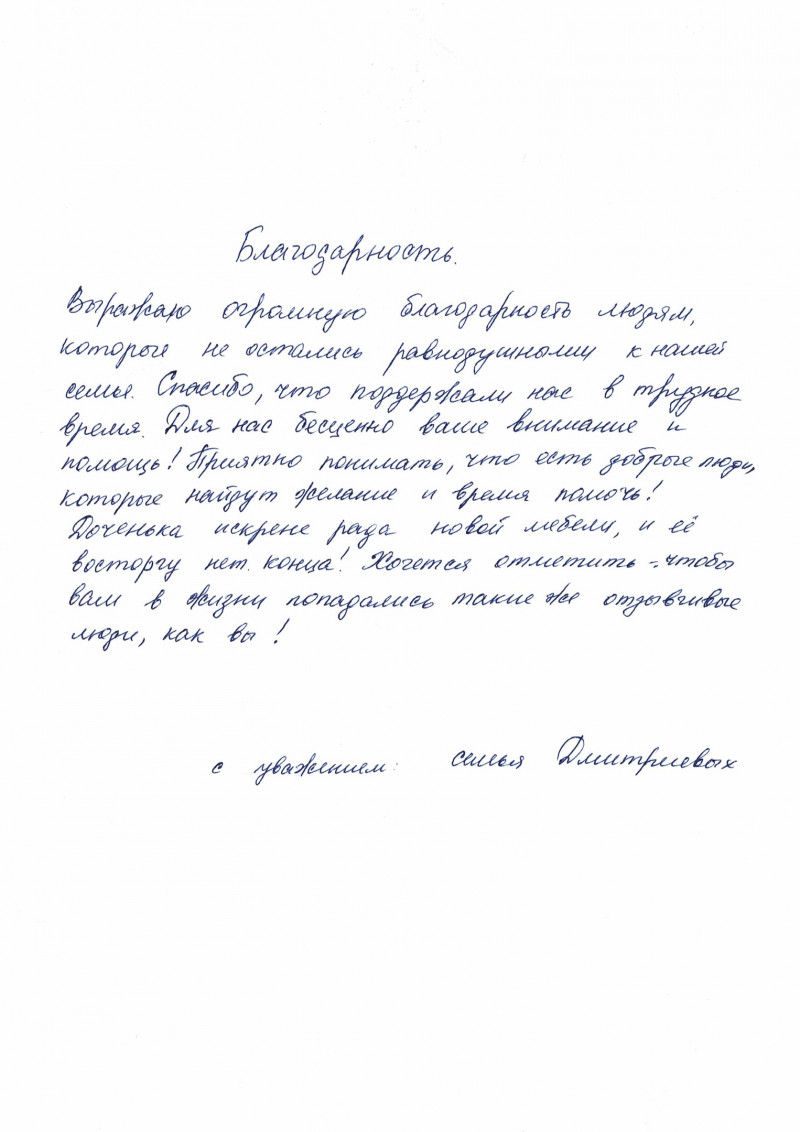 Благодарность.
Выражаю огромную благодарность людям,
которые не остались равнодушными к нашей
семье. Спасибо, что поддержали нас в трудное
время. Для нас бесценно ваше внимание и
помощь! Приятно понимать, что есть добрые люди,
которые найдут желание и время помочь!
Доченька искрене рада новой мебели, и её
восторгу нет конца! Хочется отметить - чтобы
вам в жизни попадались такие же отзывчивые
люди, как вы!
с уважением: семья Дмитриевых